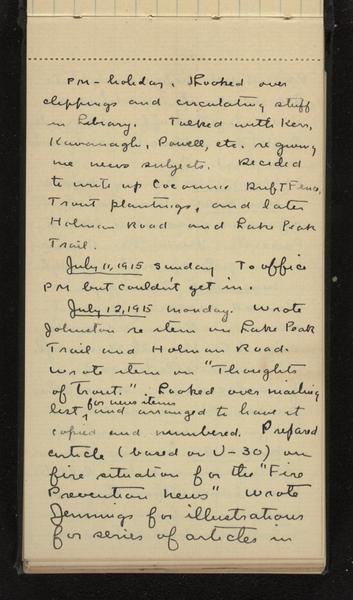 PM - holiday. Looked over
clippings and circulating stuff
in Library. Talked with Kerr,
Kavanagh, Powell, etc. re giving
me news subjects. Decided
to write up Coconino Drift Fence,
Trout plantings, and later
Holman Road and Lake Peak
Trail.
July 11, 1915 Sunday To office
PM but couldn't get in.
July 12, 1915 Monday. Wrote
Johnston re item on Lake Peak
Trail and Holman Road.
Wrote item on "Thoughts
of trout." Looked over mailing
list for news items, and arranged to have it
copied and numbered. Prepared
article (based on U-30) on
fire situation for the "Fire
Prevention News" Wrote
Jennings for illustrations
for series of articles in